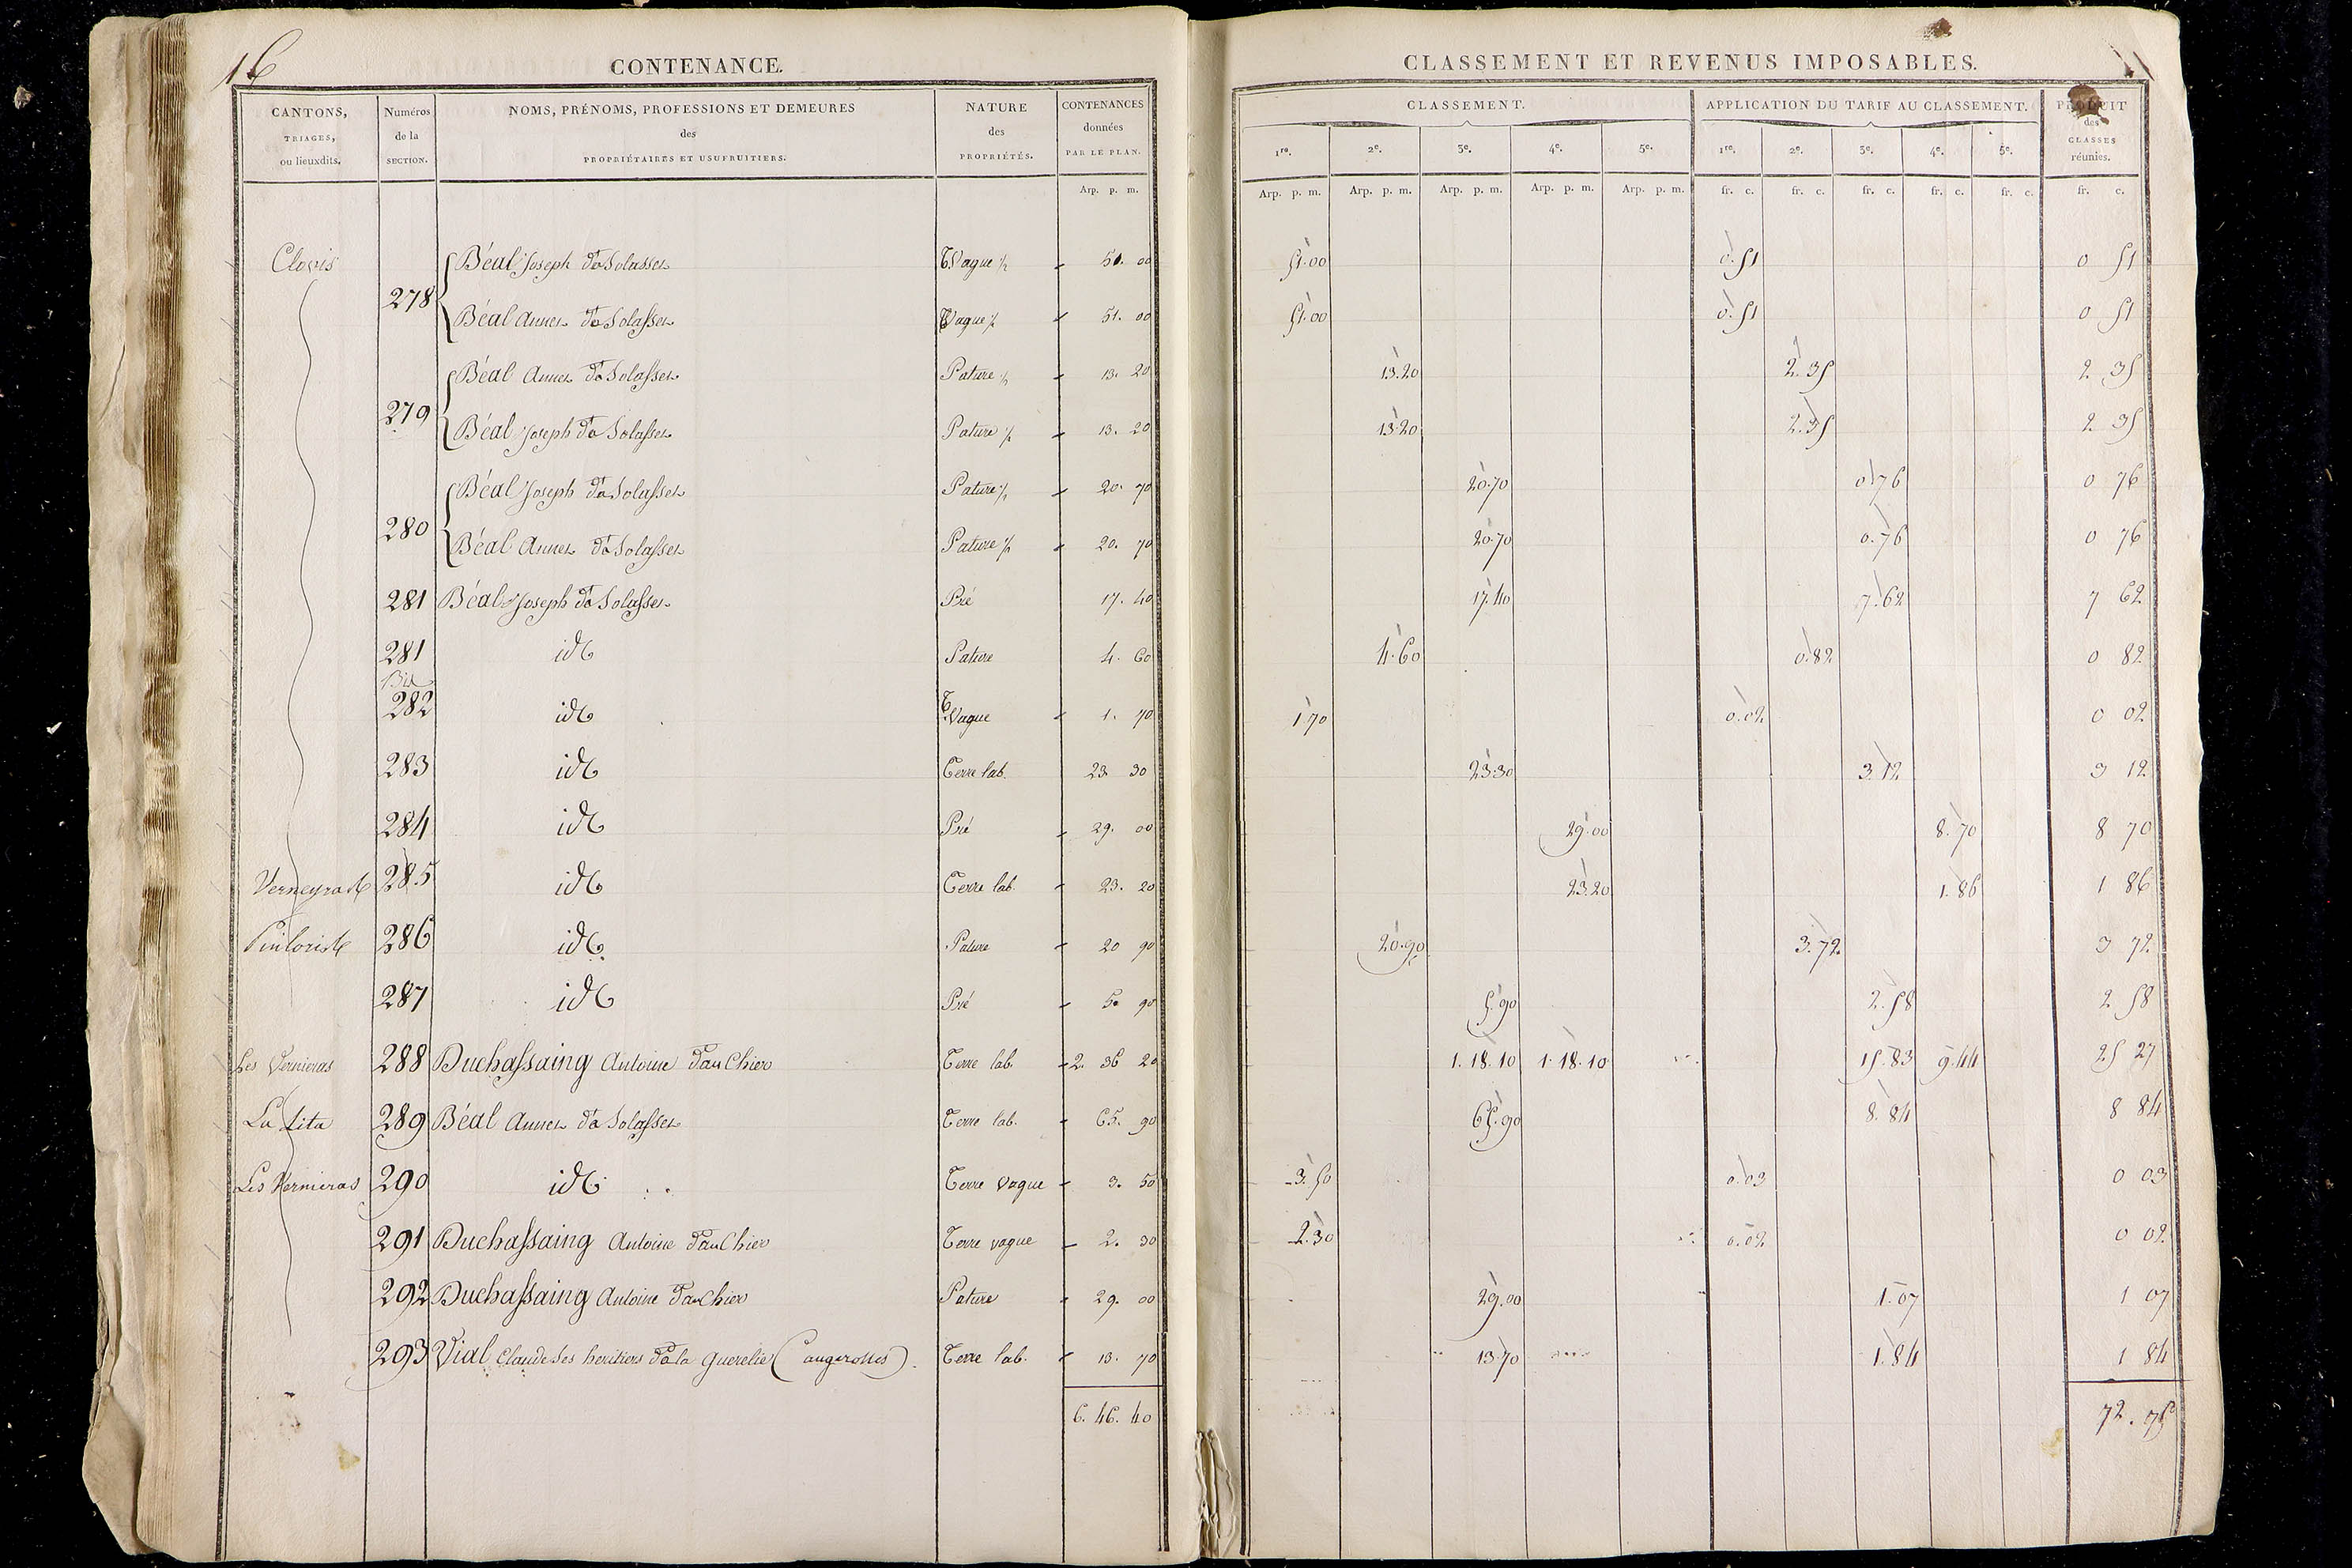 16
CONTENANCE.
CANTONS, TRIAGES, ou lieuxdits. | Numéros de la SECTION. | NOMS, PRÉNOMS, PROFESSIONS ET DEMEURES des PROPRIÉTAIRES ET USUFRUITIERS. | NATURE des PROPRIÉTÉS. | CONTENANCES données PAR LE PLAN.
Arp. p. m.
CLASSEMENT ET REVENUS IMPOSABLES.
CLASSEMENT. | APPLICATION DU TARIF AU CLASSEMENT. | PRODUIT des CLASSES réunies.
1re. | 2e. | 3e. | 4e. | 5e. | 1re. | 2e. | 3e. | 4e. | 5e.
Arp. p. m. | Arp. p. m. | Arp. p. m. | Arp. p. m. | Arp. p. m. | fr. c. | fr. c. | fr. c. | fr. c. | fr. c. | fr. c.
Clovis | 278 | Béal Joseph de Solasses | T. Vague ½ | 51. 00 | 51.00 | 0.51 | 0 51
Béal Annet de Solasses | T. Vague ½ | 51. 00 | 51.00 | 0.51 | 0 51
279 | Béal Annet de Solasses | Pature ½ | 13. 20 | 13.20 | 2.35 | 2 35
Béal Joseph de Solasses | Pature ½ | 13. 20 | 13.20 | 2.35 | 2 35
280 | Béal Joseph de Solasses | Pature ½ | 20. 70 | 20.70 | 0.76 | 0 76
Béal Annet de Solasses | Pature ½ | 20. 70 | 20.70 | 0.76 | 0 76
281 | Béal Joseph de Solasses | Pré | 17. 40 | 17.40 | 7.62 | 7 62
281 Bis | id | Pature | 4. 60 | 4.60 | 0.82 | 0 82
282 | id | T. Vague | 1. 70 | 1.70 | 0.02 | 0 02
283 | id | Terre lab. | 23 30 | 23.30 | 3.12 | 3 12
284 | id | Pré | 29. 00 | 29.00 | 8.70 | 8 70
285 | id | Terre lab. | 23. 20 | 23.20 | 1.86 | 1 86
286 | id. | Pature | 20 90 | 20.90 | 3.72 | 3 72
287 | id | Pré | 5. 90 | 5.90 | 2.58 | 2 58
Les Vernieras | 288 | Duchassaing Antoine du Chier | Terre lab. | 2. 36 20 | 1.18.10 | 1.18.10 | 15.83 | 9.44 | 25 27
La Lita | 289 | Béal Annet de Solasses | Terre lab. | 65. 90 | 65.90 | 8.84 | 8 84
Les Vernieras | 290 | id | Terre Vague | 3. 50 | 3.50 | 0.03 | 0 03
291 | Duchassaing Antoine du Chier | Terre vague | 2. 30 | 2.30 | 0.02 | 0 02
292 | Duchassaing Antoine du Chier | Pature | 29. 00 | 29.00 | 1.07 | 1 07
293 | Vial Claude ses heritiers de la Querelie | Terre lab. | 13. 70 | 13.70 | 1.84 | 1 84
6. 46. 40 | 72. 75